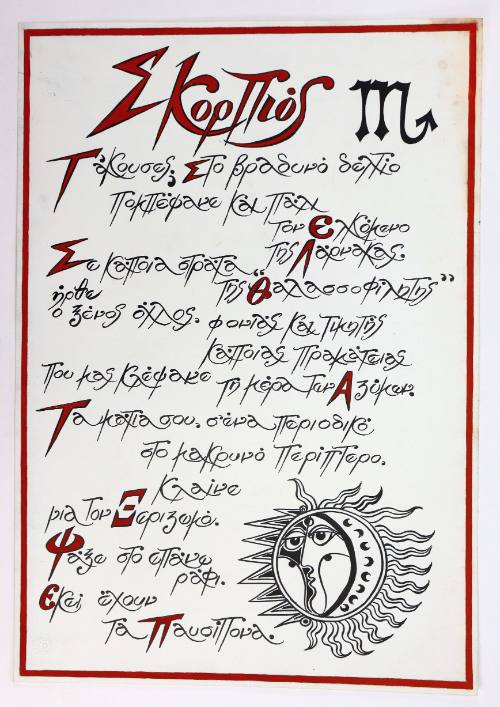 Σκορπιός
Τ' άκουσες; Στο βραδυνό δελτίο
Πομπέψανε και πάλι
τον Ελκόμενο
της Λάρνακας.
Σε κάποια στράτα
της "Θαλασσοφίλητης"
ήρθε
ο ξένος όχλος. φονιάς και τιμητής
κάποιας πραμάτειας
Που μας κλέψανε τη μέρα των Αζύμων.
Τα μάτια σου. σ' ένα περιοδικό
στο μακρυνό περίπτερο.
Κλαίνε
για τον Ξεριζωμό.
Ψάξε στο επάνω
ράφι.
Εκεί έχουν
τα Παυσίπονα.